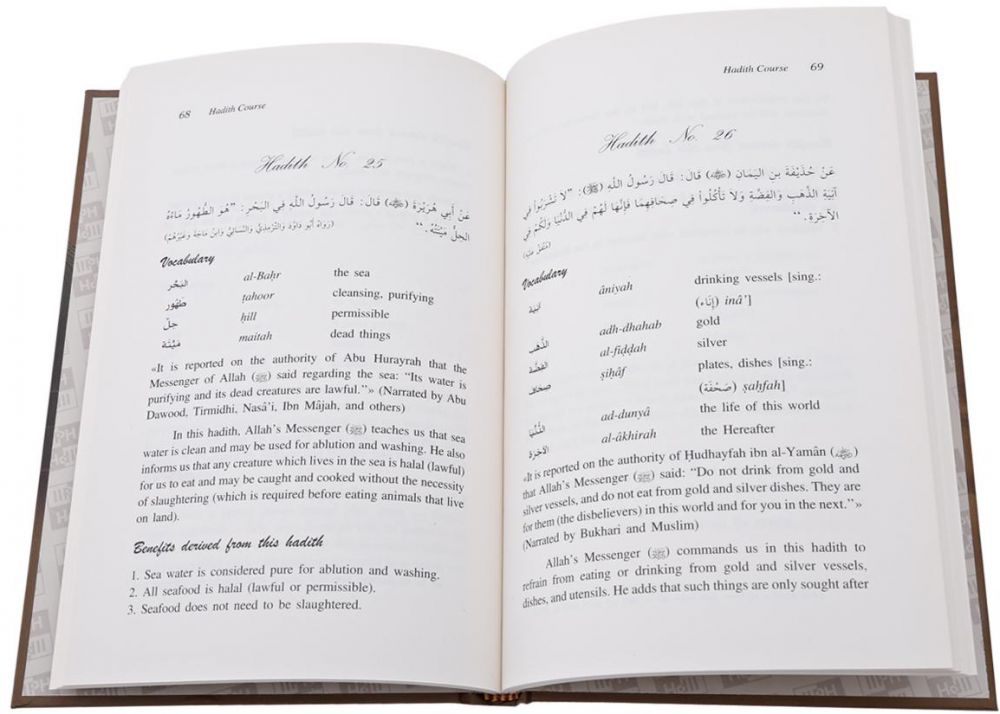 68 Hadith Course
Hadith No. 25
عَنْ أَبِي هُرَيْرَةَ (ﷺ) قَالَ: قَالَ رَسُولُ اللَّه فِي البَحْرِ: "هُوَ الطَّهُورُ مَاءُهُ
الحِلُّ مَيْتَتُهُ."
(رَوَاهُ أَبُو دَاوُدَ وَالتِّرْمِذِيُّ وَالنَّسَائِيُّ وَابْنُ مَاجَهْ وَغَيْرُهُمْ)
Vocabulary
البَحْر al-Baḥr the sea
طَهُور ṭahoor cleansing, purifying
حِلّ ḥill permissible
مَيْتَة maitah dead things
«It is reported on the authority of Abu Hurayrah that the
Messenger of Allah (ﷺ) said regarding the sea: “Its water is
purifying and its dead creatures are lawful.”» (Narrated by Abu
Dawood, Tirmidhi, Nasâ’i, Ibn Mâjah, and others)
In this hadith, Allah’s Messenger (ﷺ) teaches us that sea
water is clean and may be used for ablution and washing. He also
informs us that any creature which lives in the sea is halal (lawful)
for us to eat and may be caught and cooked without the necessity
of slaughtering (which is required before eating animals that live
on land).
Benefits derived from this hadith
1. Sea water is considered pure for ablution and washing.
2. All seafood is halal (lawful or permissible).
3. Seafood does not need to be slaughtered.
Hadith Course 69
Hadith No. 26
عَنْ حُذَيْفَةَ بن اليَمَانِ قَالَ: قَالَ رَسُولُ اللَّه (ﷺ): "لَا تَشْرَبُواْ فِي
آنِيَةِ الذَّهَبِ وَالفِضَّةِ وَلَا تَأْكُلُواْ فِي صِحَافِهِمَا فَإِنَّهَا لَهُمْ فِي الدُّنْيَا وَلَكُمْ فِي
الآخِرَة."
(مُتَّفَقٌ عَلَيْهِ)
Vocabulary
آنِيَة âniyah drinking vessels [sing.:
(إِنَاء) inâ’]
الذَّهَب adh-dhahab gold
الفِضَّة al-fiḍḍah silver
صِحَاف ṣiḥâf plates, dishes [sing.:
(صَحْفَة) ṣaḥfah]
الدُّنْيَا ad-dunyâ the life of this world
الآخِرَة al-âkhirah the Hereafter
«It is reported on the authority of Ḥudhayfah ibn al-Yamân
that Allah’s Messenger (ﷺ) said: “Do not drink from gold and
silver vessels, and do not eat from gold and silver dishes. They are
for them (the disbelievers) in this world and for you in the next.”»
(Narrated by Bukhari and Muslim)
Allah’s Messenger (ﷺ) commands us in this hadith to
refrain from eating or drinking from gold and silver vessels,
dishes, and utensils. He adds that such things are only sought after